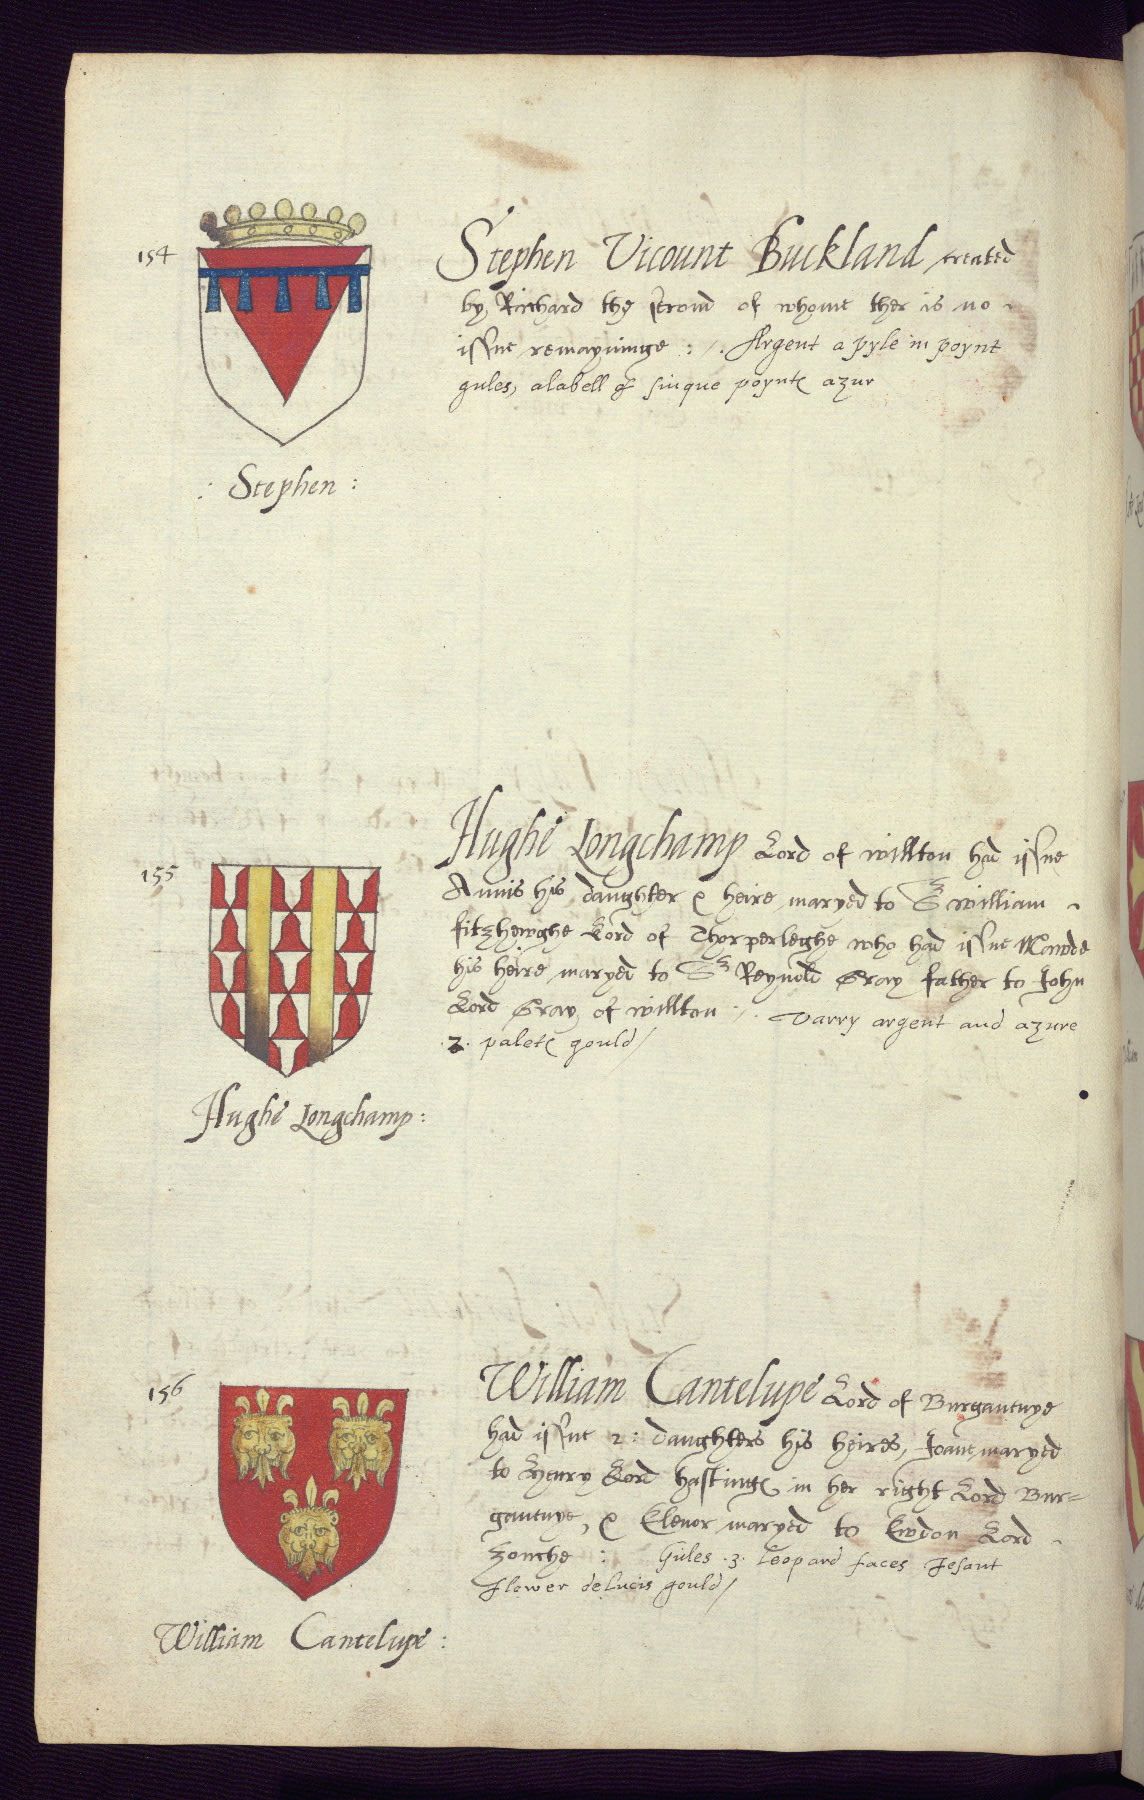 154
Stephen Vicount Buckland created
by Richard the second of whome ther is no
issue remayninge :/. Argent a pyle in poynt
gules, a labell of sinque poyntes azur
: Stephen :
155
Hughe Longchamp Lord of willton had issue
Annis his daughter & heire maryed to Sr william
fitzhewghe Lord of Thorperleghe who had issue Mawde
his heire maryed to Sr Reynold Gray father to John
Lord Gray of willton :/. Varry argent and azure
.2. paletes gould/
Hughe Longchamp :
156
William Cantelupe Lord of Burgantuye
had issue 2: daughters his heires, Joane maryed
to Henry Lord hastinges in her right Lord Bur=
gantuye, & Elenor maryed to Ewdon Lord
zouche : Gules .3. Leopard faces Jesant
flower delucis gould/
William Cantelupe :